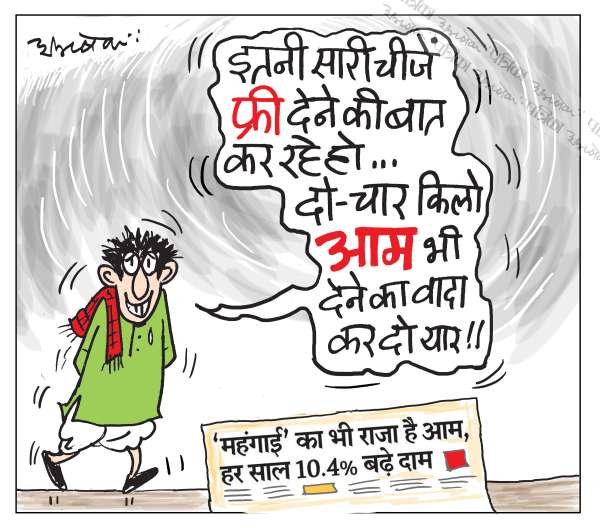 इतनी सारी चीजें
फ्री देने की बात
कर रहे हो...
दो-चार किलो
आम भी
देने का वादा
कर दो यार!!
'महंगाई' का भी राजा है आम,
हर साल 10.4% बढ़े दाम